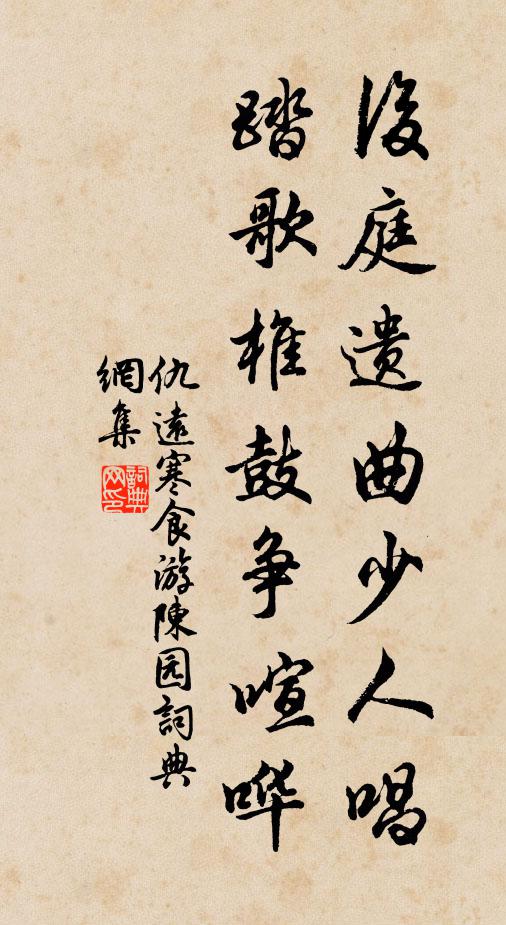 後庭遗曲少人唱
踏歌椎鼓争喧哗
仇遠寒食游陳园詞典
網集
詞典
网印